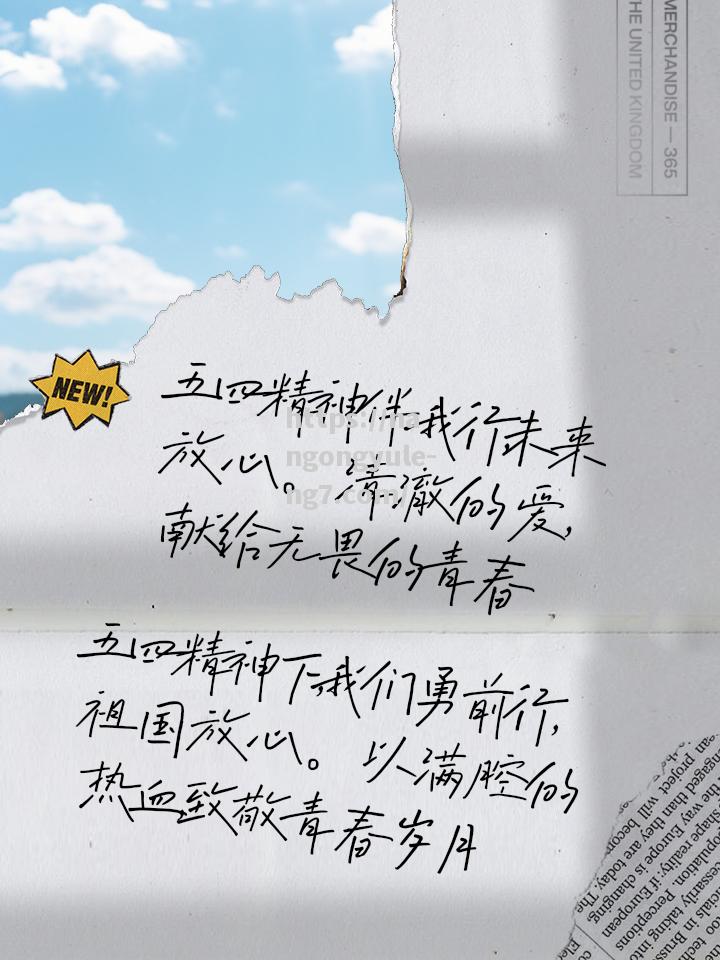 MERCHANDISE — 365
THE UNITED KINGDOM
NEW!
五四精神伴我行未来
放心。清澈的爱,
献给无畏的青春
https://na
ngongyule-
ng7.com/
五四精神下,我们勇前行,
祖国放心。以满腔的
热血致敬青春岁月
too
cials in Bruss
cessarily taking into
population. Perceptions
shape reality: if European
the way Europe is changing
ngaged than they are today. The
an project will becom